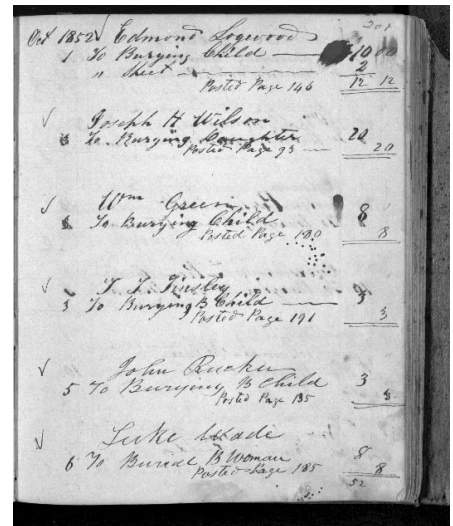 201
Oct 1852 √ Edmond Logwood
1 To Burying Child — 10 00
" Sheet 2
Posted Page 146 12 12
√ Joseph H Wilson
To Burying Daughter 20
Posted Page 93 — 20
√ Wm Green
To Burying Child 8
Posted Page 180 8
√ T. T. Tinsley
3 To Burying B Child — 3
Posted Page 191 3
√ John Rucker
5 To Burying B Child 3
Posted Page 135 3
√ Luke Wade
6 To Burial B Woman 8
Posted Page 185 8
52